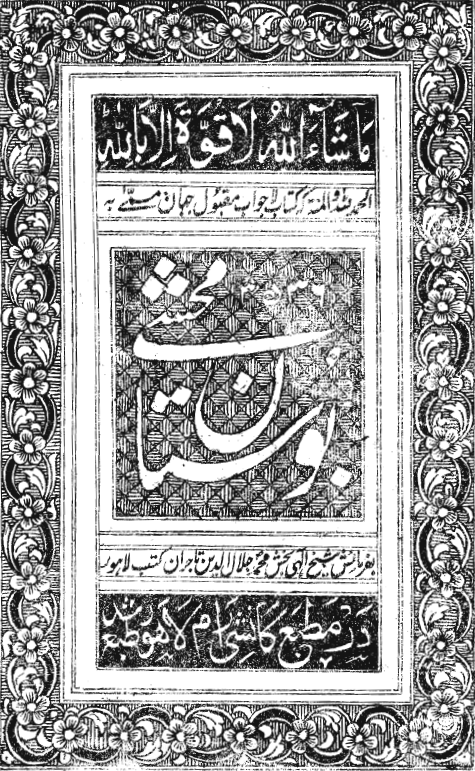 ما شاء الله لا قوة الا بالله
الحمد لله والمنة که کتاب لاجواب مقبول جهان مسمی به
بوستان محشی
بفرمایش شیخ الهی بخش محمد جلال الدین تاجران کتب لاهور
در مطبع کانشی رام لاهور طبع